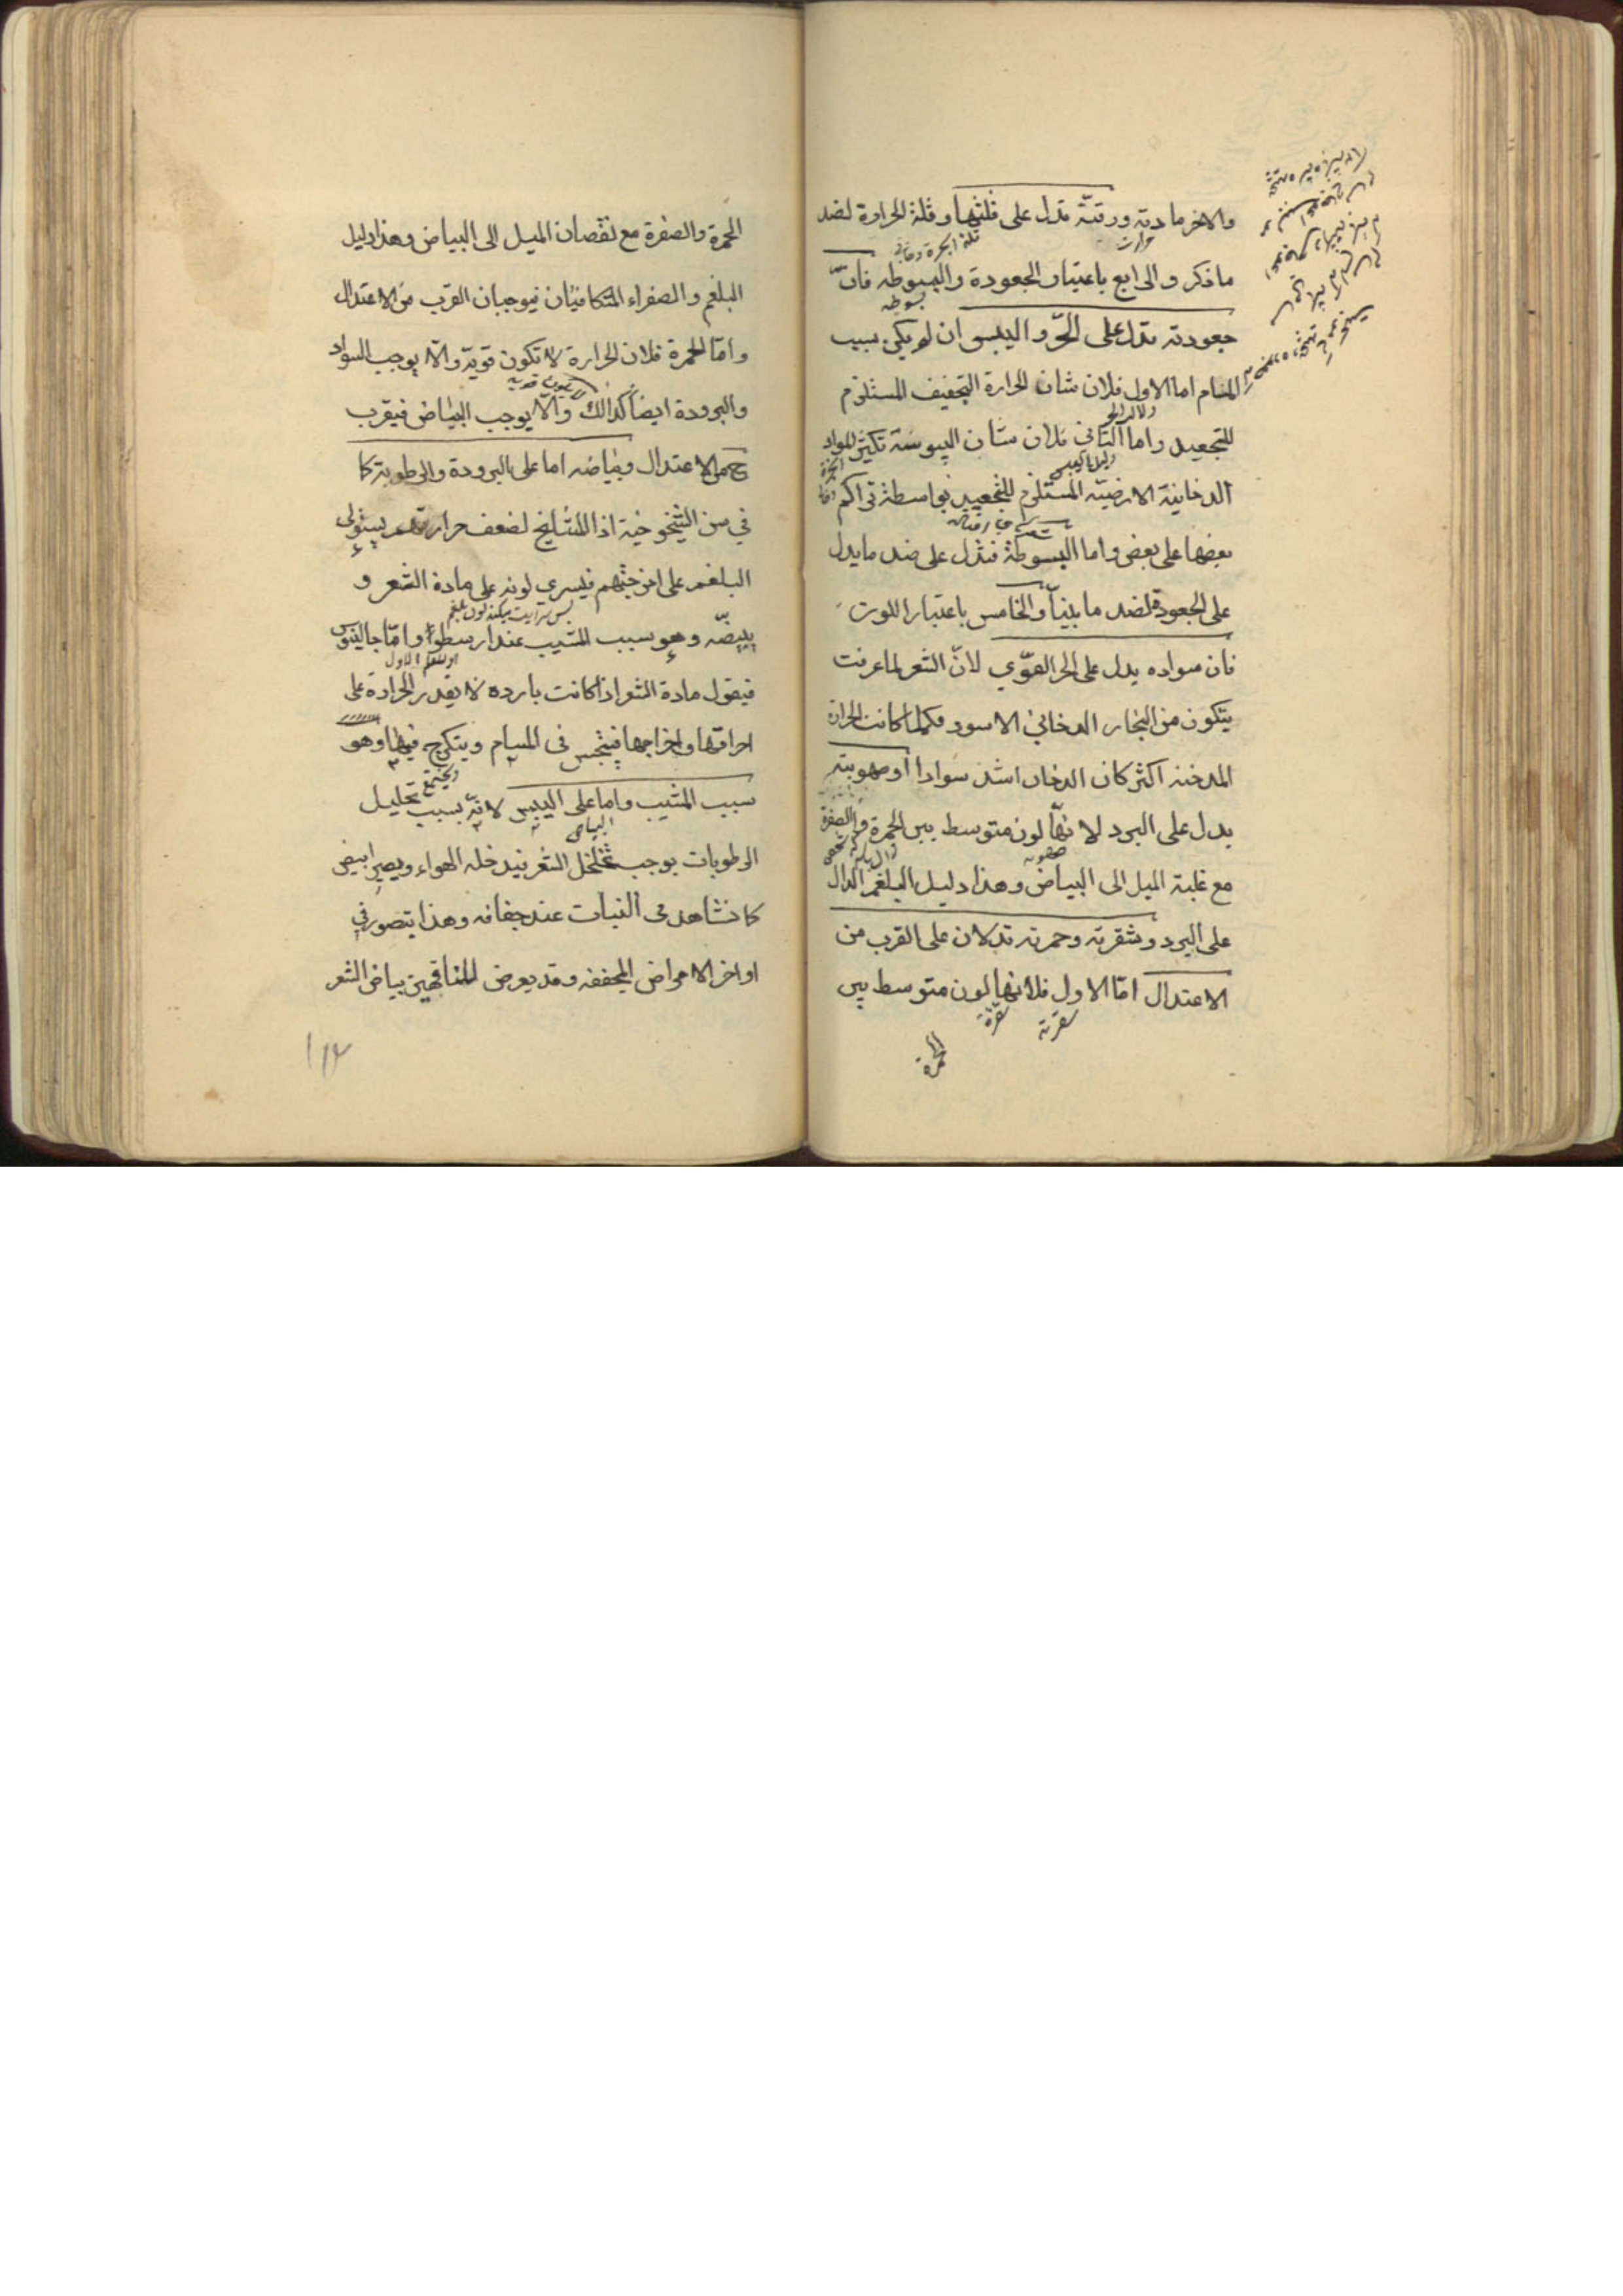 والاخر مادته ورقته تدل على قلتها وقلة الحرارة لضد
ما ذكر والرابع باعتبار الجعودة والبسوطه فانّ
جعودته تدل على الحّر واليبس ان لم يكن بسبب
المسام اما الاول فلان شان الحرارة التجفيف المستلزم
للتجعيد واما الثاني فلان شان اليبوسة تكثير المواد
الدخانية الارضيّه المستلزم للتجعيد بواسطة تراكم
بعضها على بعض واما البسوطة فتدل على ضد ما يدل
على الجعودة لضد ما بينا والخامس باعتبار اللون
فان سواده يدل على الحر القوّي لانّ الشعر لما عرفت
يتكون من البخار الدخاني الاسود فكلما كانت الحرارة
المدخنه اكثر كان الدخان اشد سوادا او صهوبته
يدل على البرد لانهّا لون متوسط بين الحمرة والصفرة
مع غلبة الميل الى البياض وهذا دليل البلغم الدال
على البرد وشقرته وحمرته تدلان على القرب من
الاعتدال امّا الاول فلانها لون متوسط بين
شقرته
شقرة
الحمرة
الحمرة والصفرة مع نقصان الميل الى البياض وهذا دليل
البلغم والصفراء المتكافئان فيوجبان القرب من الاعتدال
وامّا الحمرة فلان الحرارة لا تكون قويّة والّا يوجب السواد
والبرودة ايضا كذالك والّا يوجب البياض فيقرب
ح من الاعتدال وبياضه اما على البرودة والرطوبة كا
في سن الشيخوخية اذا المشايخ لضعف حرارتهم يستولى
البلغم على امزجتهم فيسري لونه على مادة الشعر و
يبيضّه وهو سبب الشيب عند ارسطو وامّا جالينوس
فيقول مادة الشعر اذا كانت بارده لا يقدر الحرارة على
احراقها واخراجها فيحتبس في المسام ويتكرج فيها وهو
سبب المشيب واما على اليبس لانّه بسبب تحليل
الرطوبات يوجب تخلخل الشعر فيدخله الهواء ويصير ابيض
كا نشاهد في النبات عند جفافه وهذا يتصور في
اواخر الامراض المجففه وقد يعرض للناقهين بياض الشعر